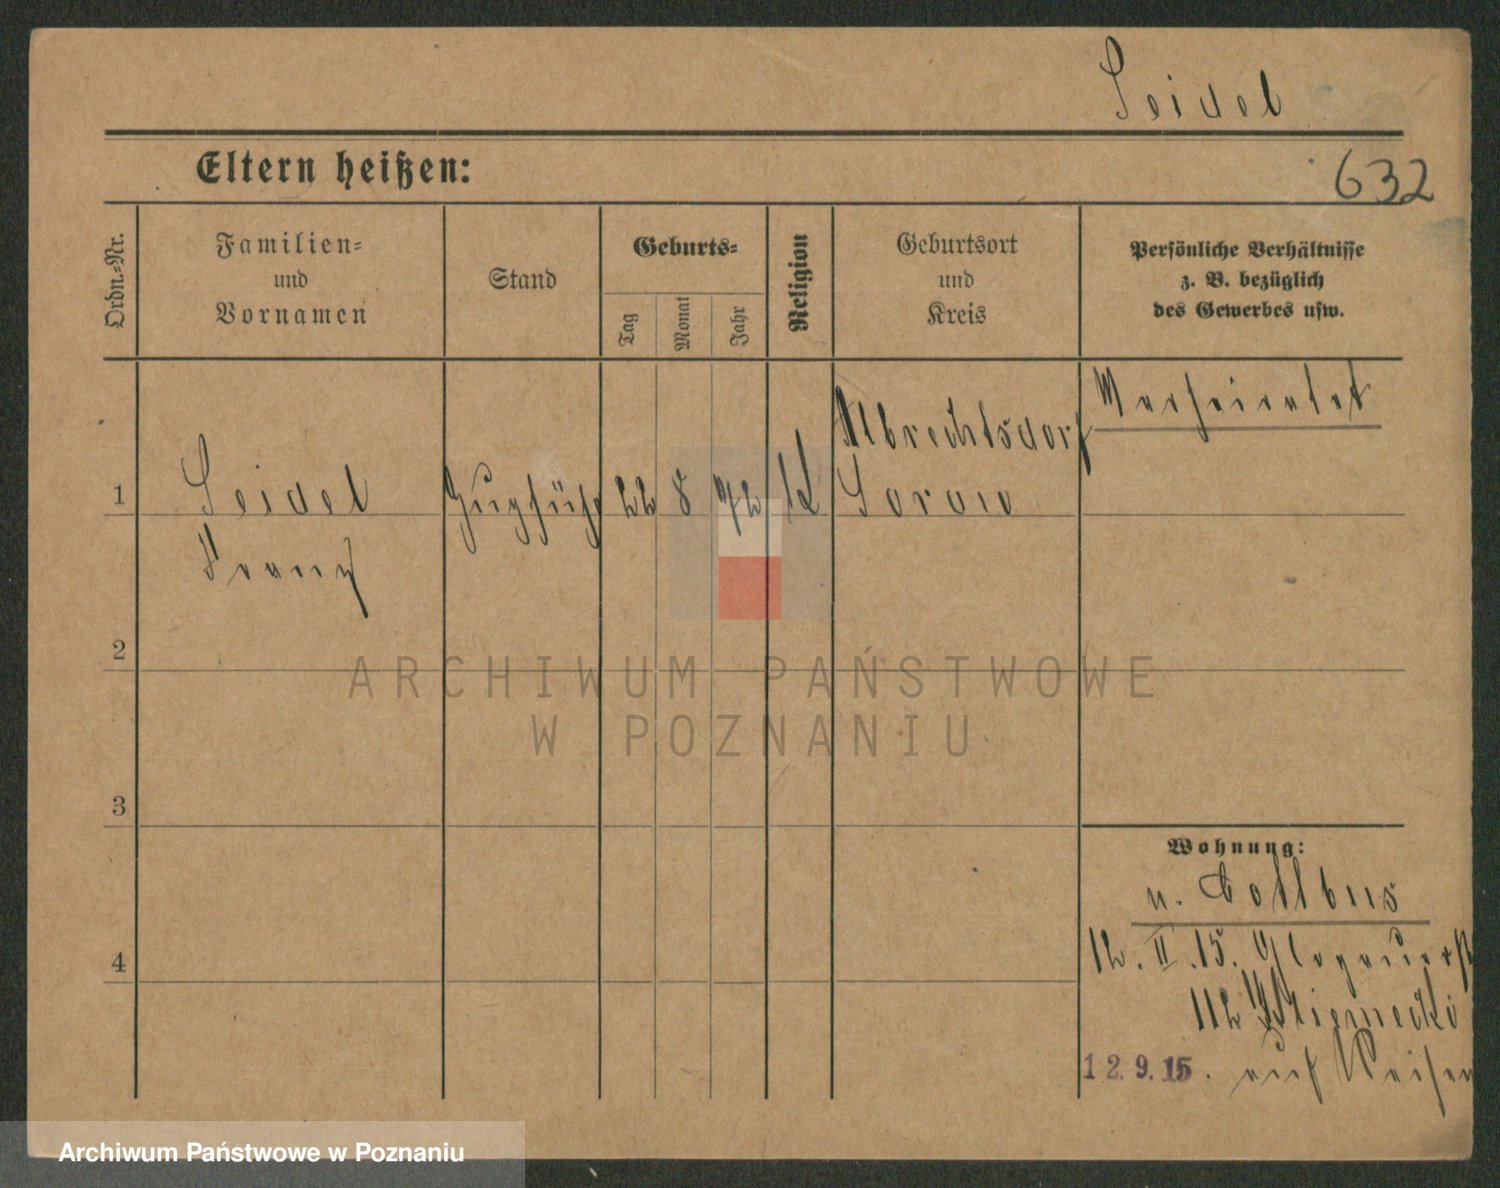 Seidel
Eltern heißen:
632
Ordn.-Nr.
Familien-
und
Vornamen
Stand
Geburts-
Tag
Monat
Jahr
Religion
Geburtsort
und
Kreis
Persönliche Verhältnisse
z. B. bezüglich
des Gewerbes usw.
Verheiratet
Albrechtsdorf
1
Seidel
Zugführ
22
8
72
K
Sorau
Franz
2
ARCHIWUM PAŃSTWOWE
W POZNANIU
3
Wohnung:
n. Cottbus
4
12. II. 15. Glogauerst
112
12. 9. 15. auf Reisen
Archiwum Państwowe w Poznaniu